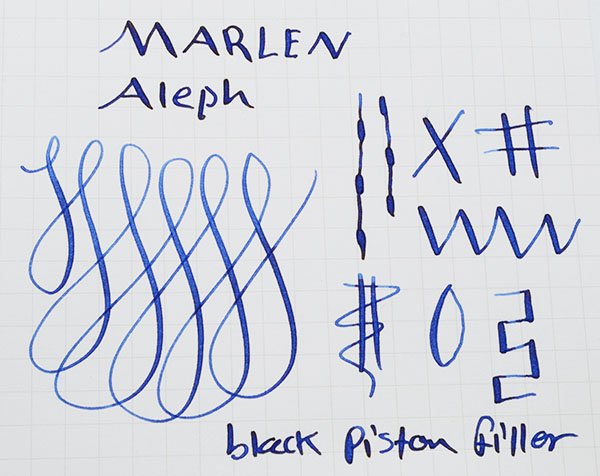 MARLEN
Aleph
X #
0
black Piston filler